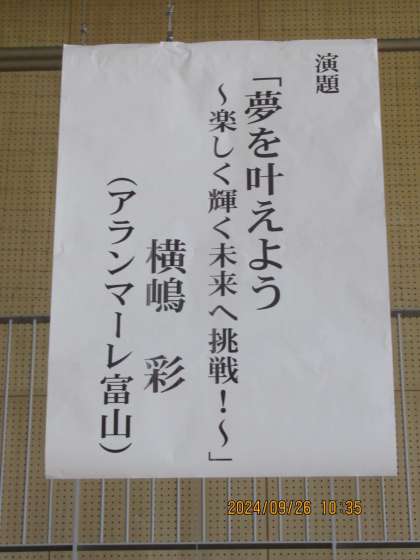 演題
「夢を叶えよう
～楽しく輝く未来へ挑戦！～」
横嶋 彩
（アランマーレ富山）
2024/09/26 10:35